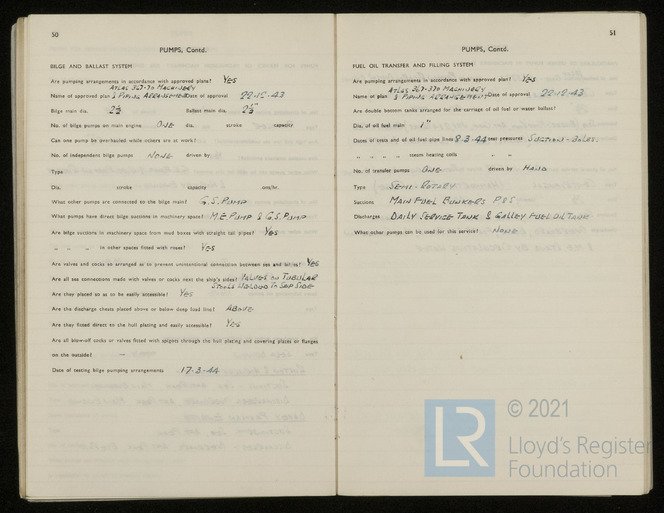 50
PUMPS, Contd.
BILGE AND BALLAST SYSTEM
Are pumping arrangements in accordance with approved plans? YES
ATLAS 367-70 MACHINERY
Name of approved plan & PIPING ARRANGEMENT Date of approval 22-12-43
Bilge main dia. 2½" Ballast main dia. 2½"
No. of bilge pumps on main engine ONE dia. stroke capacity
Can one pump be overhauled while others are at work?
No. of independent bilge pumps NONE driven by
Type
Dia. stroke capacity tons/hr.
What other pumps are connected to the bilge main? G.S. PUMP
What pumps have direct bilge suctions in machinery space? M.E. PUMP & G.S. PUMP
Are bilge suctions in machinery space from mud boxes with straight tail pipes? YES
„ „ „ in other spaces fitted with roses? YES
Are valves and cocks so arranged as to prevent unintentional connection between sea and bilges? YES
Are all sea connections made with valves or cocks next the ship's sides? VALVES ON TUBULAR
STOOLS WELDED TO SHIP SIDE
Are they placed so as to be easily accessible? YES
Are the discharge chests placed above or below deep load line? ABOVE
Are they fitted direct to the hull plating and easily accessible? YES
Are all blow-off cocks or valves fitted with spigots through the hull plating and covering plates or flanges
on the outside? —
Date of testing bilge pumping arrangements 17-3-44
51
PUMPS, Contd.
FUEL OIL TRANSFER AND FILLING SYSTEM
Are pumping arrangements in accordance with approved plan? YES
ATLAS 367-370 MACHINERY
Name of plan & PIPING ARRANGEMENT Date of approval 22-12-43
Are double bottom tanks arranged for the carriage of oil fuel or water ballast?
Dia. of oil fuel main 1"
Dates of tests end of oil fuel pipe lines 8-3-44 test pressures SUCTION - 30 LBS.
„ „ „ „ steam heating coils „ „
No. of transfer pumps ONE driven by HAND
Type SEMI-ROTARY
Suctions MAIN FUEL BUNKERS P & S
Discharges DAILY SERVICE TANK & GALLEY FUEL OIL TANK
What other pumps can be used for this service? NONE
LR
© 2021
Lloyd's Register
Foundation